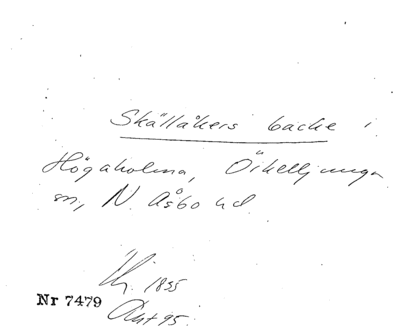 Skällåkers backe i
Högaholma, Örkelljunga
sn, N. Åsbo hd.
1855
Nr 7479
Ant 95.